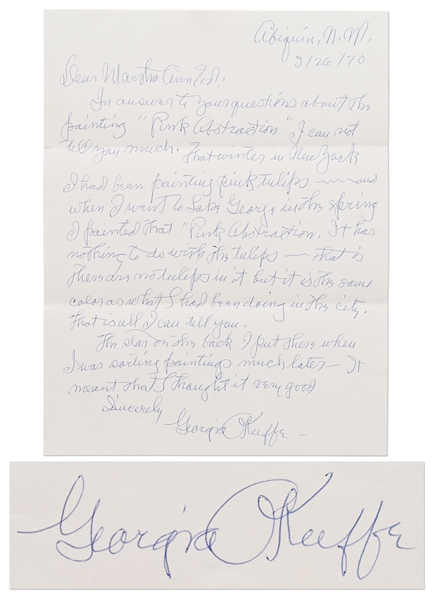 Abiquiu, N.M.
3/26/70
Dear Marsha
In answer to your questions about the
painting "Pink Abstraction" I can not
tell you much. That winter in New York
I had been painting pink tulips — and
when I went to Lake George in the spring
I painted that "Pink Abstraction. It has
nothing to do with the tulips — that is
there are no tulips in it but it is the same
color as what I had been doing in the city.
That is all I can tell you.
The star on the back I put there when
I was sorting paintings much later — It
meant that I thought it very good
Sincerely
Georgia O'Keeffe —
Georgia O'Keeffe